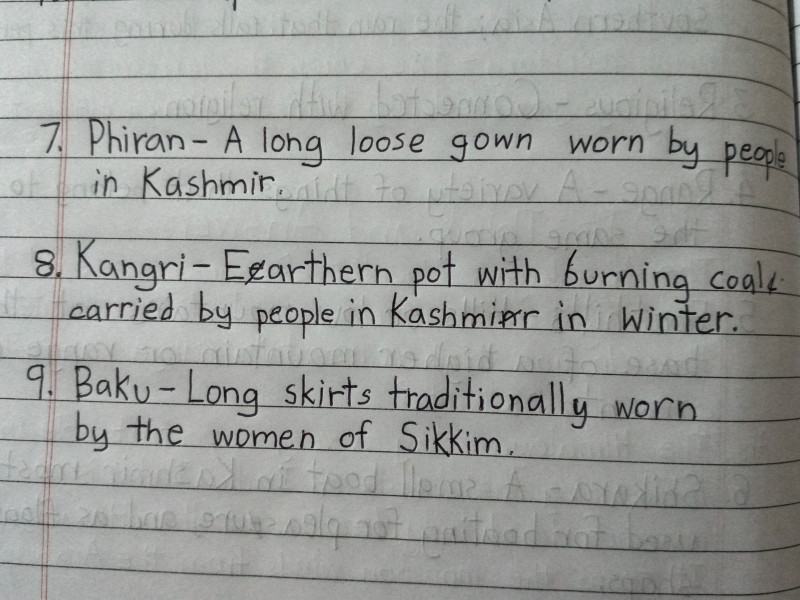 7. Phiran - A long loose gown worn by people
in Kashmir.
8. Kangri - Earthern pot with burning coals
carried by people in Kashmir in winter.
9. Baku - Long skirts traditionally worn
by the women of Sikkim.